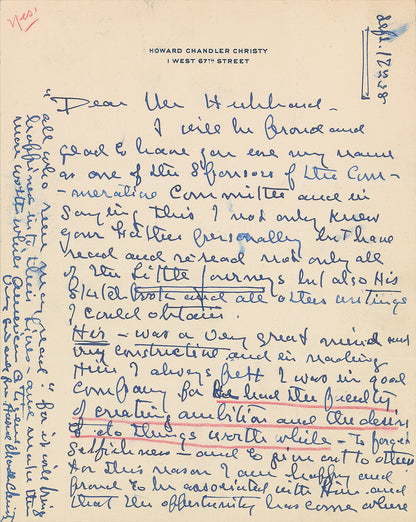 Yes.
Sept. 17th 38
HOWARD CHANDLER CHRISTY
1 WEST 67TH STREET
Dear Mr Hubbard -
I will be proud and
glad to have you use my name
as one of the Sponsors of the Com-
-memorative Committee and in
saying this I not only knew
your Father personally but have
read and reread not only all
of the Little Journeys but also His
Scrap book and all other writings
I could obtain.
His - was a very great mind and
very constructive, and in reading
Him I always felt I was in good
company for he had the faculty
of creating ambition and the desire
to do things worth while - to forget
selfishness - and to give out to others
For this reason I am happy and
proud to be associated with Him and
that the opportunity has come where
"all who run may read" for it will bring
happiness into their lives - and make them
more worth while American Citizens
Howard Chandler Christy